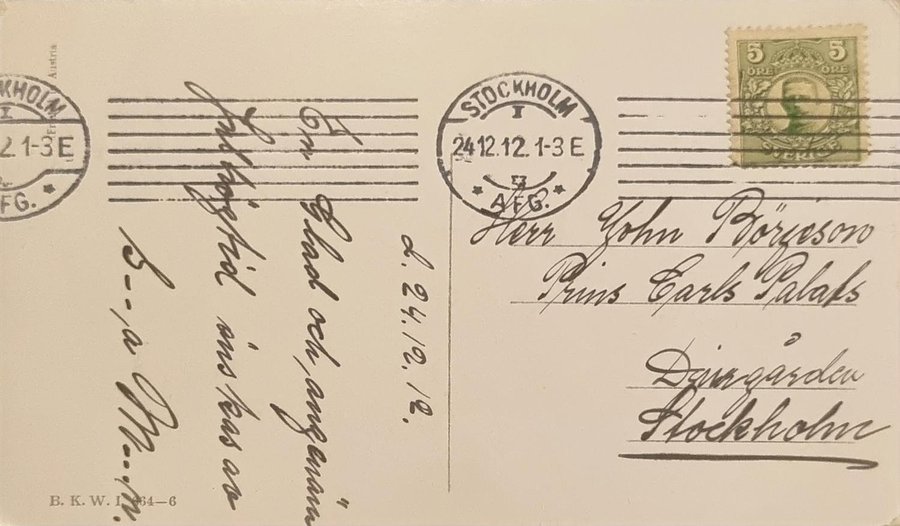 Austria
B. K. W. I. 464-6
d. 24.12.12.
En Glad och angenäm
Julhögtid önskas av
B--,a M--,n.
STOCKHOLM
1
24.12.12. 1-3 E
AFG.
KHOLM
2. 1-3 E
FG.
5 5
ÖRE ÖRE
SVERIGE
Herr John Börjeson
Prins Carls Palats
Djurgården
Stockholm